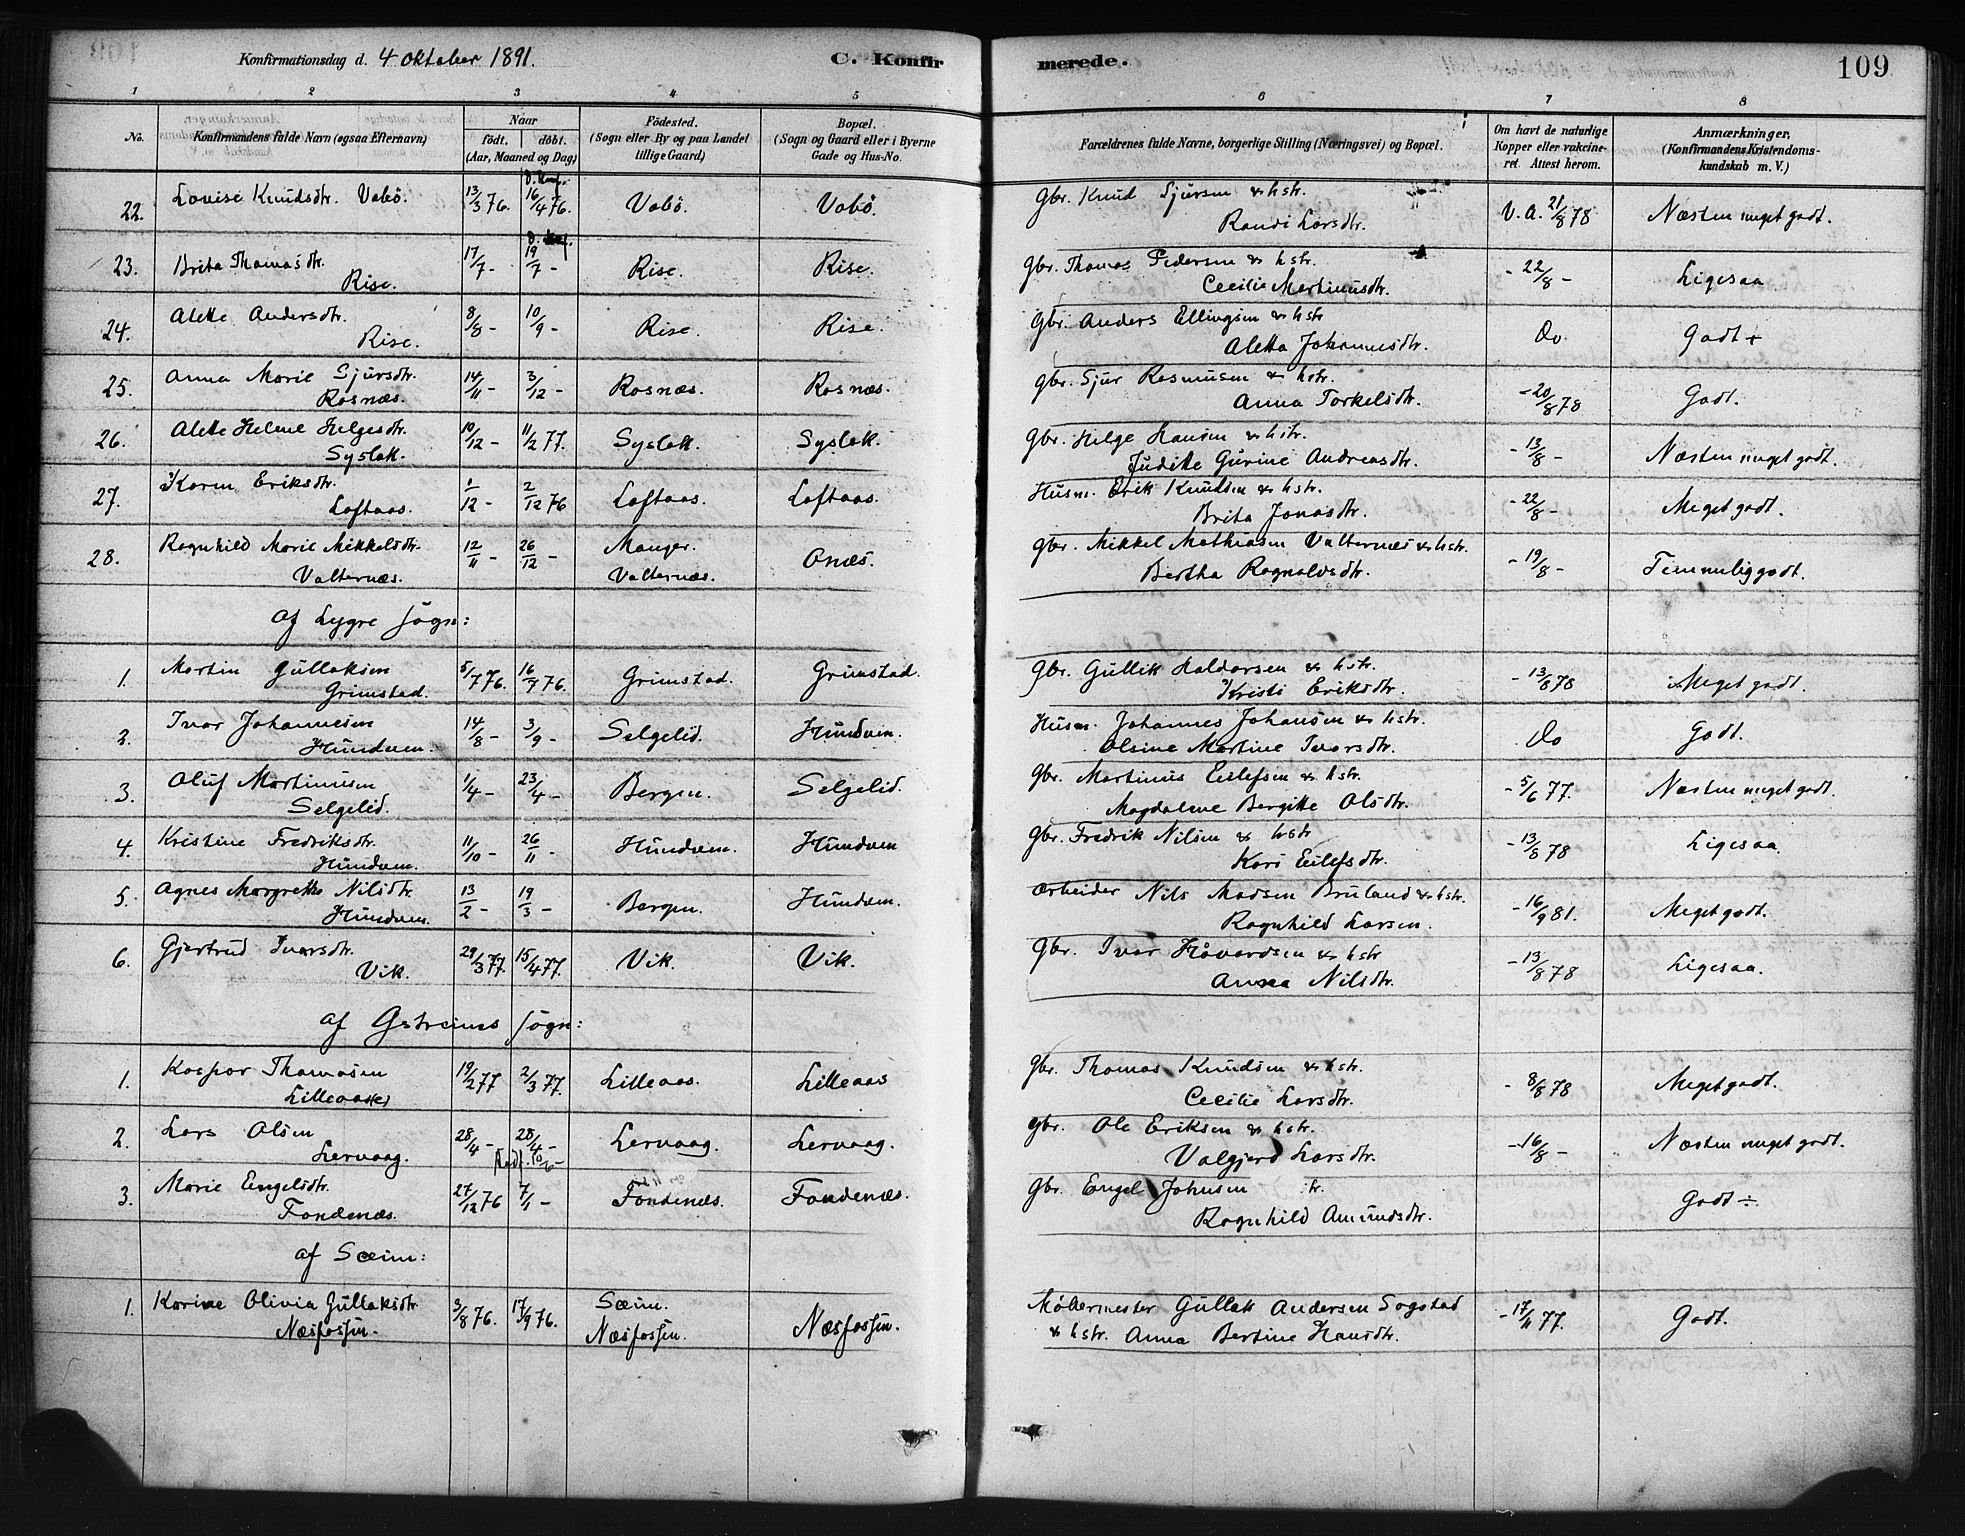 Konfirmationsdag d. 4 Oktober 1891.
C. Konfirmerede.
109
1 2 3 4 5 6 7 8
No. Konfirmandens fulde Navn (ogsaa Efternavn) Naar født. døbt. (Aar, Maaned og Dag) Fødested. (Sogn eller By og paa Landet tillige Gaard) Bopæl. (Sogn og Gaard eller i Byerne Gade og Hus-No. Forældrenes fulde Navne, borgerlige Stilling (Næringsvei) og Bopæl. Om havt de naturlige Kopper eller vakcineret. Attest herom. Anmærkninger. (Konfirmandens Kristendomskundskab m. V.)
22. Lovise Knudsdtr. Vabø. 13/3 76. 16/4 76. Vabø. Vabø. Gbr. Knud Sjursen & hstr. Randi Larsdtr. V. A. 21/8 78 Næsten meget godt.
23. Brita Thomasdtr. Rise. 17/7 - 19/7 - Rise. Rise. Gbr. Thomas Pedersen & hstr. Cecilie Martinusdtr. - 22/8 - Ligesaa
24. Alette Andersdtr. Rise. 8/8 - 10/9 - Rise. Rise. Gbr. Anders Ellingsen & hstr Aletta Johannesdtr. Do. Godt +
25. Anna Marie Sjursdtr. Rosnæs. 14/11 - 3/12 - Rosnæs. Rosnæs. Gbr. Sjur Rasmusen & hstr. Anna Torkelsdtr. - 20/8 78 Godt.
26. Alette Helene Helgesdtr. Syslak. 10/12 - 11/2 77. Syslak. Syslak. Gbr. Helge Hansen & hstr. Judite Gurine Andreasdtr. - 13/8 - Næsten meget godt.
27. Karen Eriksdtr. Loftaas. 1/12 - 2/12 76 Loftaas. Loftaas. Husm. Erik Knudsen & hstr. Brita Jonasdtr. - 22/8 - Meget godt.
28. Ragnhild Marie Mikkelsdtr. Valternæs. 12/11 - 26/12 - Manger. Valternæs. Onæs. Gbr. Mikkel Mathiasen Valternæs & hstr. Bertha Ragnalvsdtr. - 19/8 - Temmelig godt.
af Lygre sogn:
1. Martin Gullaksen Grimstad. 5/7 76. 16/7 76. Grimstad. Grimstad. Gbr. Gullik Haldorsen & hstr. Kristi Eriksdtr. - 13/8 78 Meget godt.
2. Ivar Johannesen Hundven. 14/8 - 3/9 - Selgelid. Hundven. Husm. Johannes Johansen & hstr. Olsine Martine Ivarsdtr. Do Godt.
3. Oluf Martinusen Selgelid. 1/4 - 23/4 - Bergen. Selgelid. Gbr. Martinus Eilefsen & hstr. Magdalene Bergitte Olsdtr. - 5/6 77. Næsten meget godt.
4. Kristine Fredriksdtr. Hundven. 11/10 - 26/11 - Hundven. Hundven Gbr. Fredrik Nilsen & hstr Kari Eilefsdtr. - 13/8 78 Ligesaa
5. Agnes Margrethe Nilsdtr Hundven. 13/2 - 19/3 - Bergen. Hundven. Arbeider Nils Madsen Bruland & hstr. Ragnhild Larsen. - 16/9 81. Meget godt.
6. Gjertrud Ivarsdtr. Vik. 29/3 77. 15/4 77. Vik. Vik. Gbr. Ivar Håvardsen & hstr Anna Nilsdtr. - 13/8 78 Ligesaa.
af sogn:
1. Kaspar Thomasen Lilleaas 19/2 77 2/3 77. Lilleaas. Lilleaas Gbr. Thomas Knudsen & hstr. Cecilie Larsdtr. - 8/8 78 Meget godt.
2. Lars Olsen Lervaag. 28/4 - 28/4 - Lervaag. Lervaag. Gbr. Ole Eriksen & hstr. Valgjerd Larsdtr. - 16/8 - Næsten meget godt.
3. Marie Engelsdtr. Fondenæs. 27/12 76 7/1 - Fondenæs. Fondenæs. Gbr. Engel Johnsen Ragnhild Amundsdtr. Godt ÷
af Sæim:
1. Karine Olivia Gullaksdtr. Næsfossen. 3/8 76. 17/9 76. Sæim. Næsfossen. Næsfossen. Møllermester Gullak Andersen Sogstad & hstr. Anna Bertine Hansdtr. - 17/11 77. Godt.